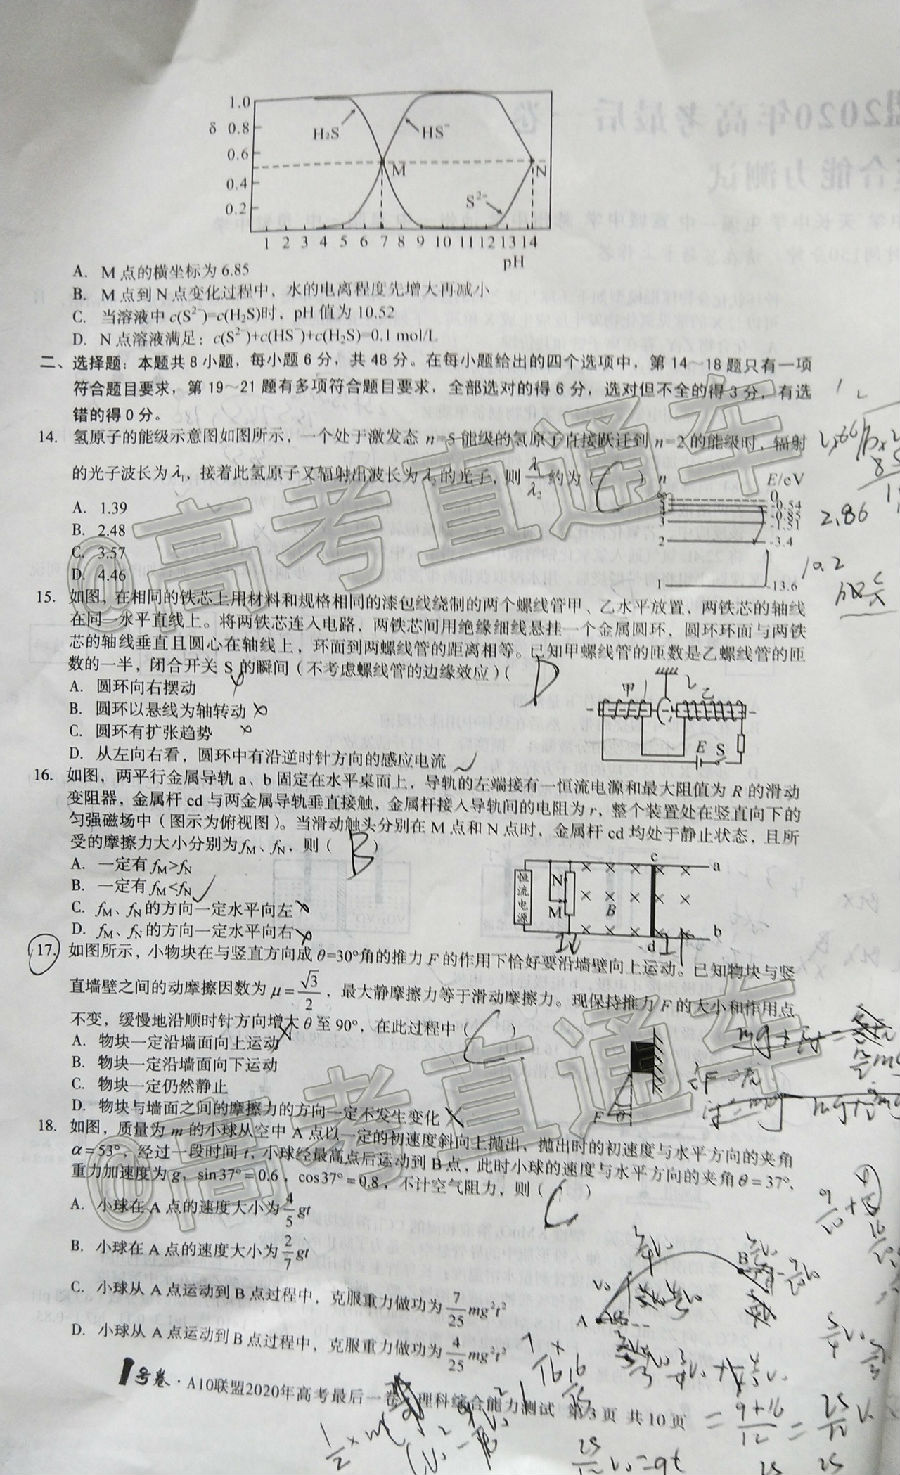 1.0
δ 0.8
0.6
0.4
0.2
H₂S
HS⁻
M
N
S²⁻
1 2 3 4 5 6 7 8 9 10 11 12 13 14
pH
A. M点的横坐标为6.85
B. M点到N点变化过程中，水的电离程度先增大再减小
C. 当溶液中c(S²⁻)=c(H₂S)时，pH值为10.52
D. N点溶液满足：c(S²⁻)+c(HS⁻)+c(H₂S)=0.1 mol/L
二、选择题：本题共8小题，每小题6分，共48分。在每小题给出的四个选项中，第14～18题只有一项
符合题目要求，第19～21题有多项符合题目要求，全部选对的得6分，选对但不全的得3分，有选
错的得0分。
14. 氢原子的能级示意图如图所示，一个处于激发态n=5能级的氢原子直接跃迁到n=2的能级时，辐射
的光子波长为λ₁，接着此氢原子又辐射出波长为λ₂的光子，则λ₁/λ₂约为（C）
n E/eV
∞ 0
-0.54
-0.85
3 -1.51
2 -3.4
1 -13.6
2.86
10.2
A. 1.39
B. 2.48
C. 3.57
D. 4.46
15. 如图，在相同的铁芯上用材料和规格相同的漆包线绕制的两个螺线管甲、乙水平放置，两铁芯的轴线
在同一水平直线上。将两铁芯连入电路，两铁芯间用绝缘细线悬挂一个金属圆环，圆环环面与两铁
芯的轴线垂直且圆心在轴线上，环面到两螺线管的距离相等。已知甲螺线管的匝数是乙螺线管的匝
数的一半，闭合开关S的瞬间（不考虑螺线管的边缘效应）（D
A. 圆环向右摆动
B. 圆环以悬线为轴转动
C. 圆环有扩张趋势
D. 从左向右看，圆环中有沿逆时针方向的感应电流
甲 乙
E S
16. 如图，两平行金属导轨a、b固定在水平桌面上，导轨的左端接有一恒流电源和最大阻值为R的滑动
变阻器，金属杆cd与两金属导轨垂直接触，金属杆接入导轨间的电阻为r，整个装置处在竖直向下的
匀强磁场中（图示为俯视图）。当滑动触头分别在M点和N点时，金属杆cd均处于静止状态，且所
受的摩擦力大小分别为fM、fN，则（B）
A. 一定有fM>fN
B. 一定有fM<fN
C. fM、fN的方向一定水平向左
D. fM、fN的方向一定水平向右
恒流电源
N
M
B
c
a
d
b
17. 如图所示，小物块在与竖直方向成θ=30°角的推力F的作用下恰好要沿墙壁向上运动。已知物块与竖
直墙壁之间的动摩擦因数为μ=√3/2，最大静摩擦力等于滑动摩擦力。现保持推力F的大小和作用点
不变，缓慢地沿顺时针方向增大θ至90°，在此过程中（C）
A. 物块一定沿墙面向上运动
B. 物块一定沿墙面向下运动
C. 物块一定仍然静止
D. 物块与墙面之间的摩擦力的方向一定不发生变化
F θ
18. 如图，质量为m的小球从空中A点以一定的初速度斜向上抛出，抛出时的初速度与水平方向的夹角
α=53°，经过一段时间t，小球经最高点后运动到B点，此时小球的速度与水平方向的夹角θ=37°，
重力加速度为g，sin37°=0.6，cos37°=0.8，不计空气阻力，则（C）
A. 小球在A点的速度大小为4/5gt
B. 小球在A点的速度大小为2/7gt
C. 小球从A点运动到B点过程中，克服重力做功为7/25mg²t²
D. 小球从A点运动到B点过程中，克服重力做功为4/25mg²t²
v₀
A
B
1号卷·A10联盟2020年高考最后一卷·理科综合能力测试 第3页 共10页
@高考直通车
@高考直通车